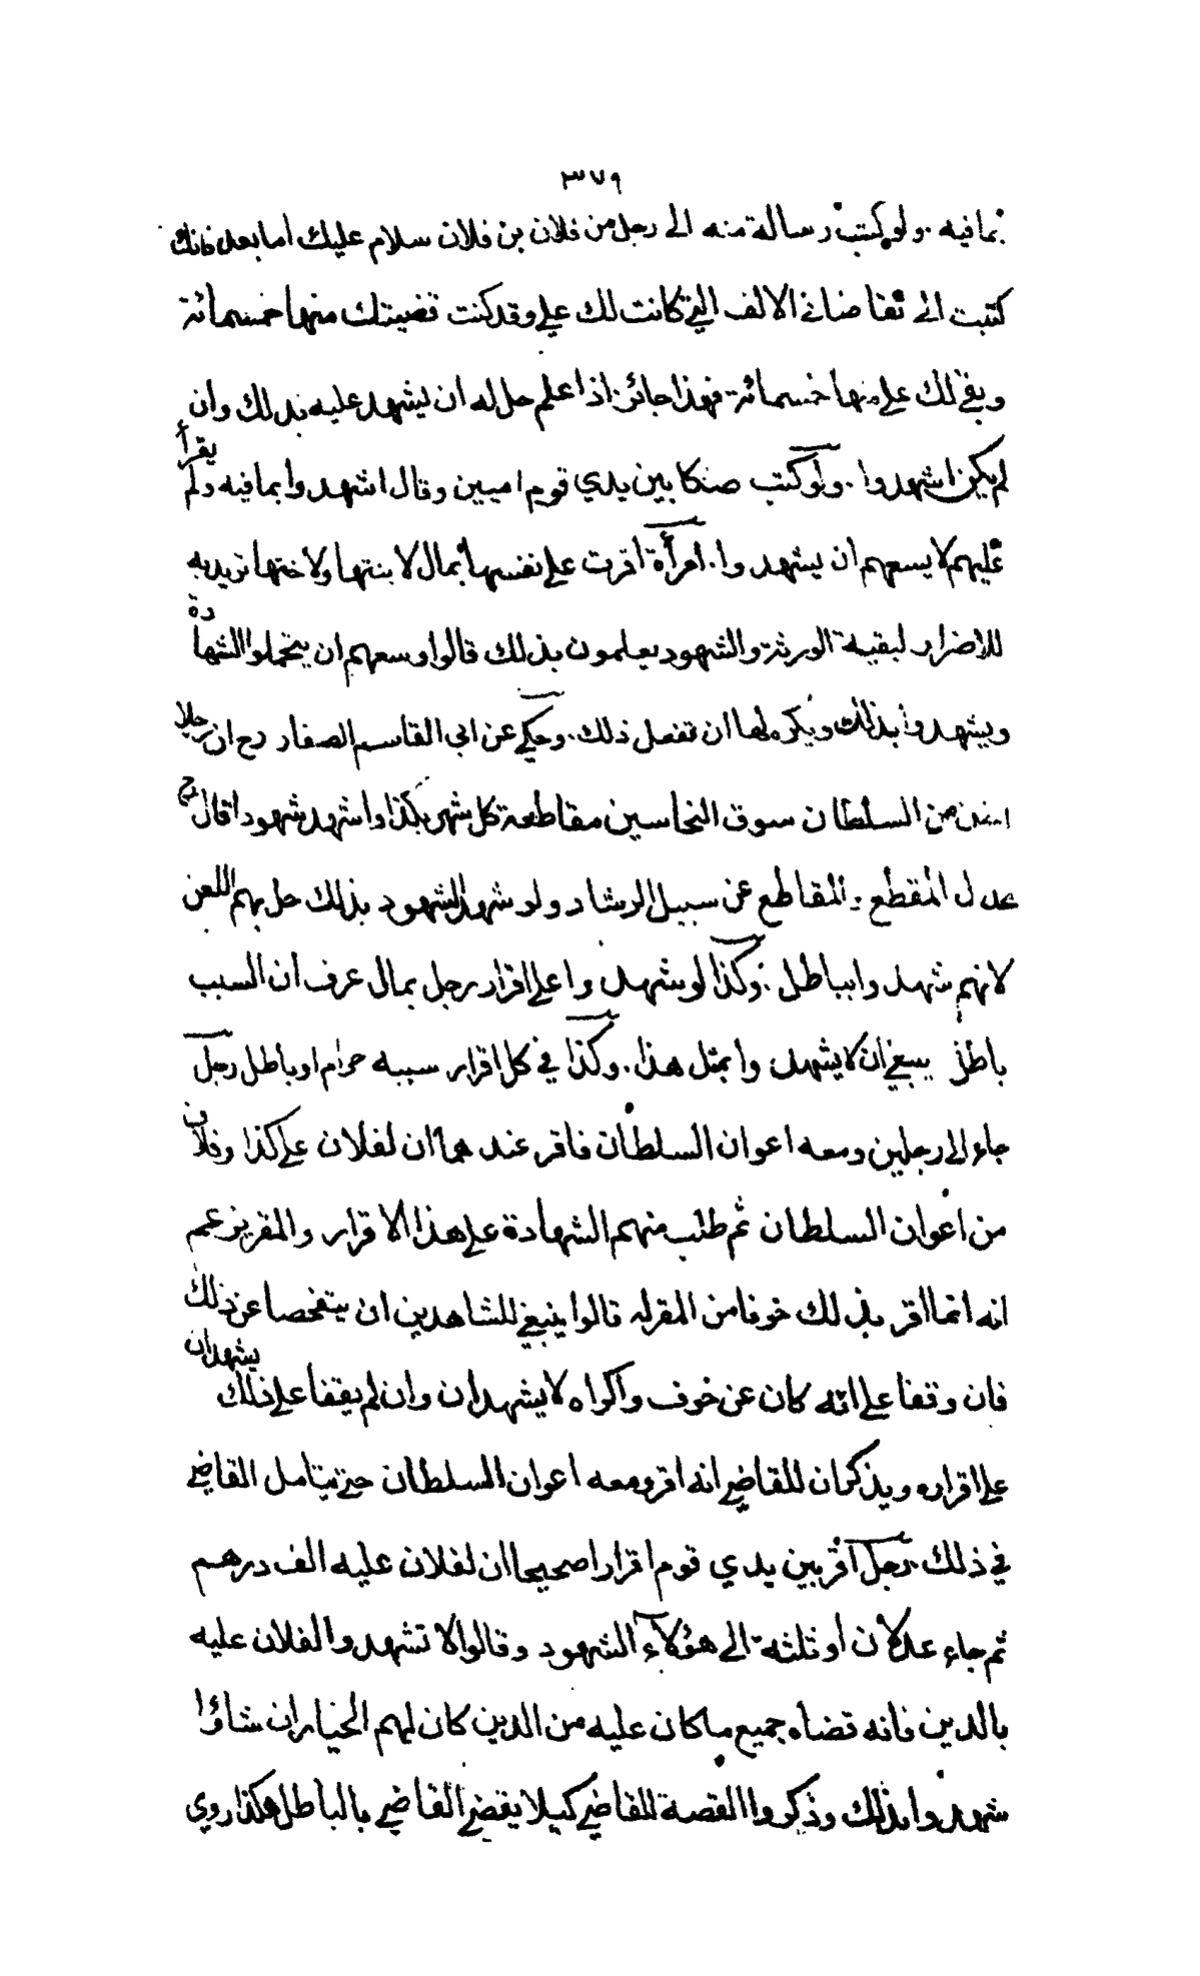 ٣٧٩
بمافيه . ولو كتب رسالة منه الى رجل من فلان بن فلان سلام عليك اما بعد فانك
كتبت الى تقاضانى الالف التى كانت لك على وقد كنت قضيتك منها خمسمائة
وبقى لك على منها خمسمائة فهذا جائز اذا علم حل له ان يشهد عليه بذلك وان
لم يكن اشهدوا . ولو كتب صكا بين يدي قوم اميين وقال اشهدوا بما فيه ولم يقرأ
عليهم لا يسعهم ان يشهدوا . امرأة اقرت على نفسها بمال لابنتها ولاختها تريد به
للاضرار لبقية الورثة والشهود يعلمون بذلك قالوا وسعهم ان يتحملوا الشهادة
ويشهدوا بذلك ويكره لها ان تفعل ذلك . وحكي عن ابي القاسم الصفار رح ان رجلا
اخذ من السلطان سوق النخاسين مقاطعة كل شهر بكذا واشهد شهودا قال رح
عدل المقطع والمقاطع عن سبيل الرشاد ولو شهد الشهود بذلك حل بهم اللعن
لانهم شهدوا بباطل . وكذا لو شهدوا على اقرار رجل بمال عرف ان السبب
باطل ينبغي ان لا يشهدوا بمثل هذا . وكذا في كل اقرار سببه حرام او باطل رجل
جاء الى رجلين ومعه اعوان السلطان فاقر عندهما ان لفلان علي كذا وفلان
من اعوان السلطان ثم طلب منهم الشهادة على هذا الاقرار والمقر يزعم
انه انما اقر بذلك خوفا من المقر له قالوا ينبغي للشاهدين ان يتفحصا عن ذلك
فان وقفا على انه كان عن خوف واكراه لا يشهدان وان لم يقفا على ذلك يشهدان
على اقراره ويذكران للقاضي انه اقر ومعه اعوان السلطان حتى يتامل القاضي
في ذلك . رجل اقر بين يدي قوم اقرارا صحيحا ان لفلان عليه الف درهم
ثم جاء عدلان او ثلثة الى هؤلاء الشهود وقالوا لا تشهدوا لفلان عليه
بالدين فانه قضاه جميع ما كان عليه من الدين كان لهم الخيار ان شاؤا
شهدوا بذلك وذكروا القصة للقاضي كيلا يقضي القاضي بالباطل هكذا روي